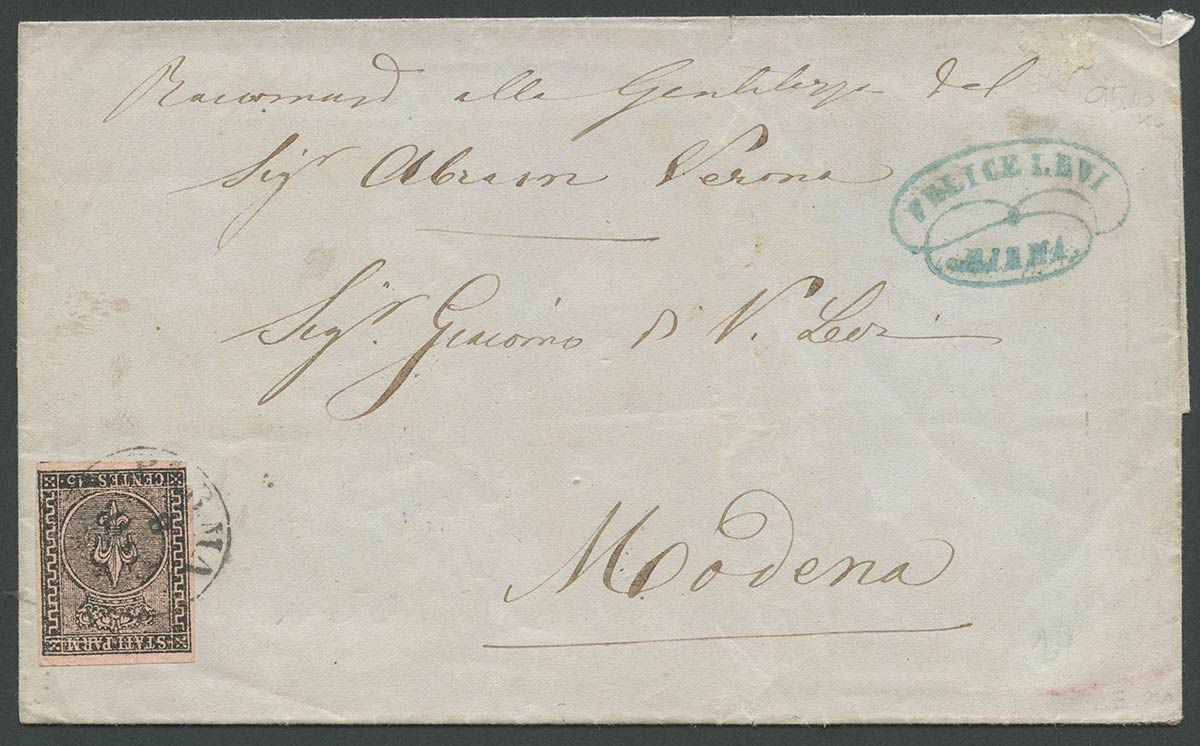 Raccomand alla Gentilezza del
Sigr Abram Verona
FELICE LEVI
PARMA
Sigr. Giacomo d V. Levi
Modena
PARMA
CENTES. 15
STATI PARM.
95.00